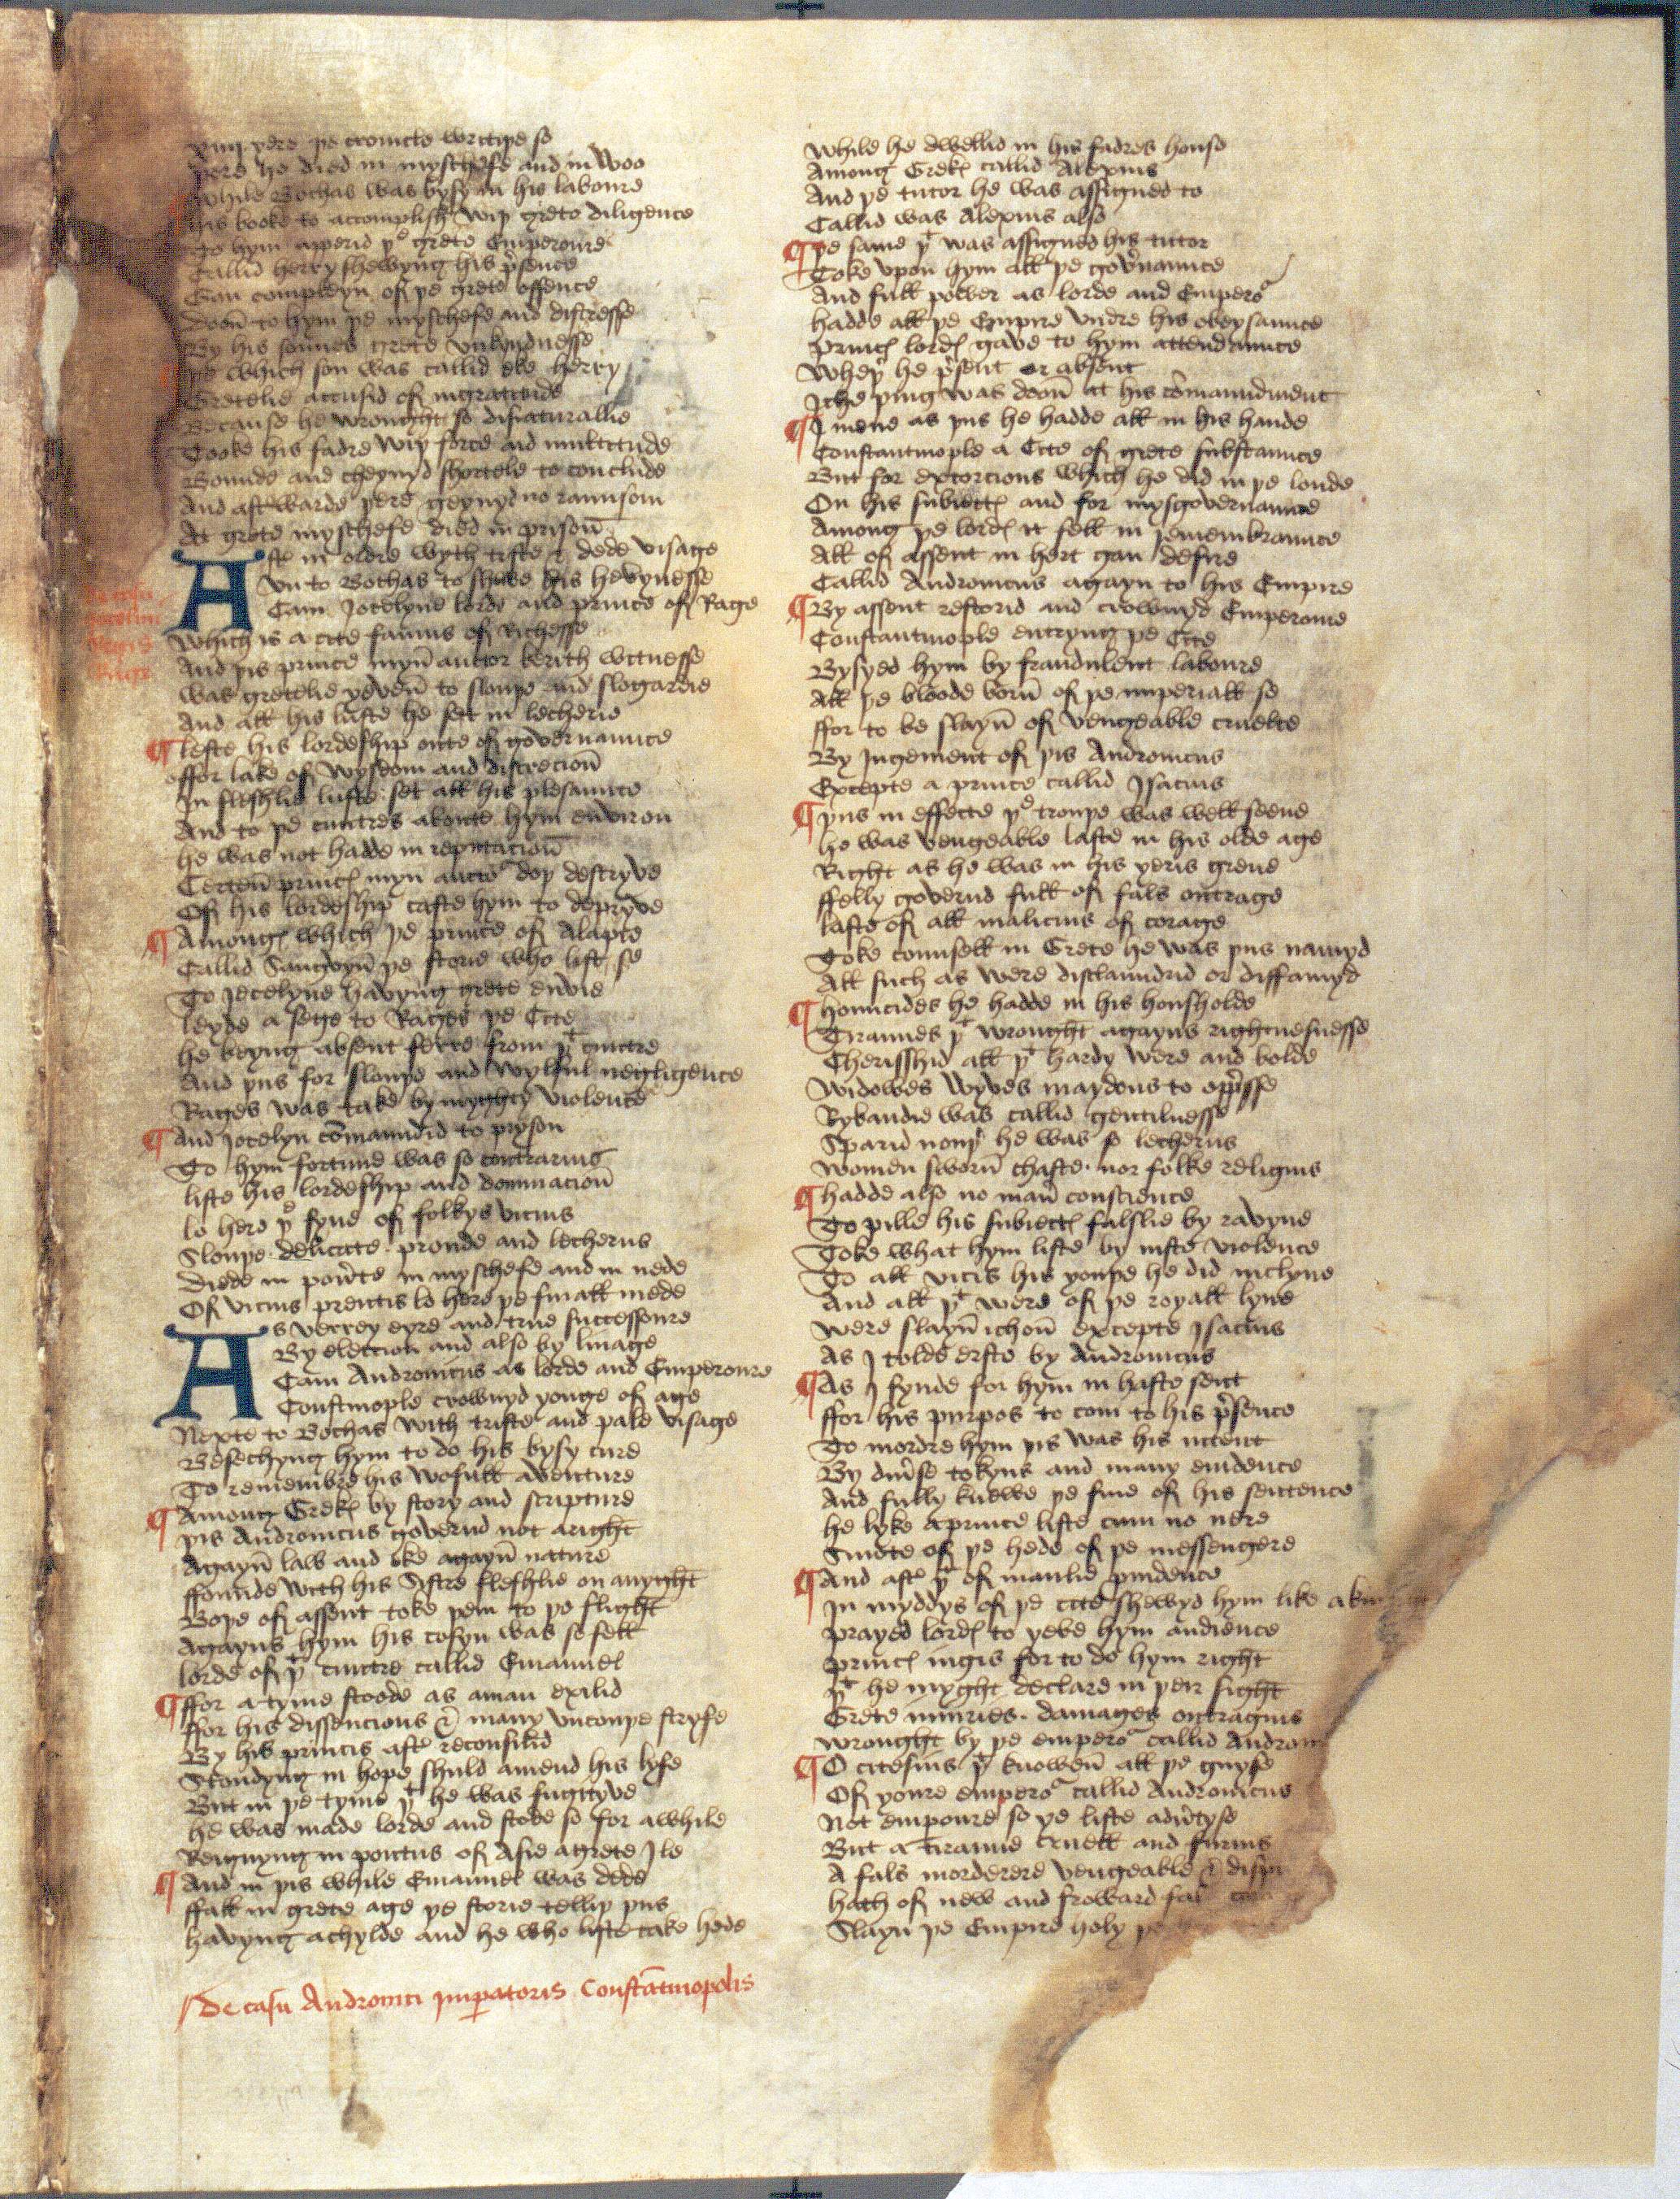 xiiij yere þe cronicle writiþe so
þere he died in myschefe and in woo
While Bochas was bysy in his laboure
his booke to accomplish wiþ grete diligence
To hym apperid þe grete Emperoure
Callid herry shewyng his p̄sence
Gan compleyn of þe grete offence
Doon̄ to hym þe myschefe and distresse
By his sonnes grete vnkyndnesse
þe which son was callid eke herry
Gretelie accusid of ingratitude
Because he wrought so disnaturallie
Tooke his fadre wiþ force and multitude
Bounde and cheynyd shortelie to conclude
And aft̄warde þere geynyd no raunsom
At grete myschefe died in prison̄
Aft̄ in ordre wyth triste & dede visage
Vn to Bochas to shewe his hevynesse
Cam Jocelyne lorde and prince of Rage
Which is a cite famus of Richesse
And þis prince myn̄ auctor berith witnesse
was gretelie yeven̄ to slouþe and slogardie
And all his luste he sett in lecherie
¶ Loste his lordeship oute of governaunce
ffor lake of wysdom and discrecion̄
In fleshlie luste set all his plesaunce
And to þe cuntres aboute hym environ
he was not hadde in reputacion̄
Certen̄ princ̄ myn auctor doþ descryve
Of his lordeship caste hym to depryve
¶ Amonge which þe prince of Alapie
Callid Sangwyn̄ þe storie who list se
To Jocelyne havyng grete envie
leyde a sege to Rages þe Cite
he beyng absent ferre from þt cuntre
And þus for slouþe and wylful negligence
Rages was take by myghty violence
¶ And Jocelyn cōmaundid to pryson
To hym fortune was so contrarius
liste his lordeship and dominacion̄
lo here þe fyne of folkys vicius
Slouþe delicate proude and lecherus
Diede in pou̅te in myschefe and in nede
Of vicius prentis lo here þe small mede
As verrey eyre and true successoure
By eleccion and also by linage
Cam Andronicus as lorde and Emperoure
Constinople crownyd yonge of age
Nexte to Bochas with triste and pale visage
Besechyng hym to do his bysy cure
To remembre his wofull aventure
¶ Among Grek̄ by story and scripture
þis Andronicus governd not aright
Agayn̄ law and eke agayn̄ nature
ffounde with his Sistre fleshlie on anyght
Boþe of assent toke þem to þe flight
Agayns hym his cosyn was so fell
lorde of þt cuntre callid Emanuel
¶ ffor a tyme stoode as aman exilid
ffor his dissencions & many vncouþe stryfe
By his princis aft̄ reconsilid
Stondyng in hope shuld amend his lyfe
But in þe tyme þt he was fugityve
he was made lorde and stode so for awhile
Reignyng in pontus of Asie agrete Ile
¶ And in þis while Emanuel was dede
ffall in grete age þe storie telliþ þus
havyng achylde and he who liste take hede
De casu Andronici jmp̱atoris Constātinopolis
While he dwellid in his fadres house
Among Grek̄ callid Alexius
And þe tutor he was assigned to
Callid was Alexius also
¶ þe same þt was assigned his tutor
Toke vpon hym all þe gov̄naunce
And full power as lorde and Emperor
hadde all þe Empire vndre his obeysaunce
princ̄ lord̄ gave to hym attendaunce
Wheþ̄ he p̄sent or absent
Iche þing was doon̄ at his cōmaundment
¶ I mene as þus he hadde all in his hande
Constantinople a Cite of grete substaunce
But for extorcions which he did in þe londe
On his subiectē and for mysgovernaunce
Among þe lord̄ it fell in remembraunce
All of assent in hert gan desire
Callid Andronicus agayn to his Empire
¶ By assent restorid and crownyd Emperoure
Constantinople entryng þe Cite
Bysyed hym by fraudulent laboure
All þe bloode born̄ of þe imperiall se
ffor to be slayn̄ of vengeable cruelte
By Iugement of þis Andronicus
Excepte a prince callid Isacius
¶ þus in effecte þe trouþe was well seene
he was vengeable laste in his olde age
Right as he was in his yeris grene
ffelly governd full of fals outrage
laste of all malicius of corage
Toke counsell in Grece he was þus namyd
All such as were disclaundrid or diffamyd
¶ homicides he hadde in his housholde
Tirannes þt wrought agayns rightuesnesse
Cherisshid all þt hardy were and bolde
widowes wyves maydons to opp̄sse
Rybaudie was callid gentilnesse
Sparid nouþ̄ he was so lecherus
women sworn̄ chaste nor folke religius
¶ hadde also no man̄ conscience
To pille his subiectē falslie by ravyne
Toke what hym liste by iniste violence
To all vicis his youþe he did inclyne
And all þt were of þe royall lyne
were slayn̄ ichon̄ excepte Isacius
As I tolde erste by Andronicus
¶ As I fynde for hym in haste sent
ffor his purpos to com to his p̄sence
To mordre hym þis was his intent
By diu̅se tokyns and many euidence
And fully knewe þe fine of his sentence
he lyke aprince liste cum no nere
Smote of þe hede of þe messengere
¶ And aft̄ þt of manlie prudence
In myddys of þe cite shewyd hym like akn
prayed lord̄ to yeve hym audience
princ̄ iugis for to do hym right
þt he myght declare in þeir sight
Grete iniuries damages outragius
wrought by þe emperor callid Andron
¶ O citesins þt knowen̄ all þe guyse
Of youre emperor callid Andronicus
Not empoure so ye liste adu̅tyse
But a tiranne cruell and furius
A fals morderere vengeable & disp
hath of new and froward fal
Slayn þe Empire holy